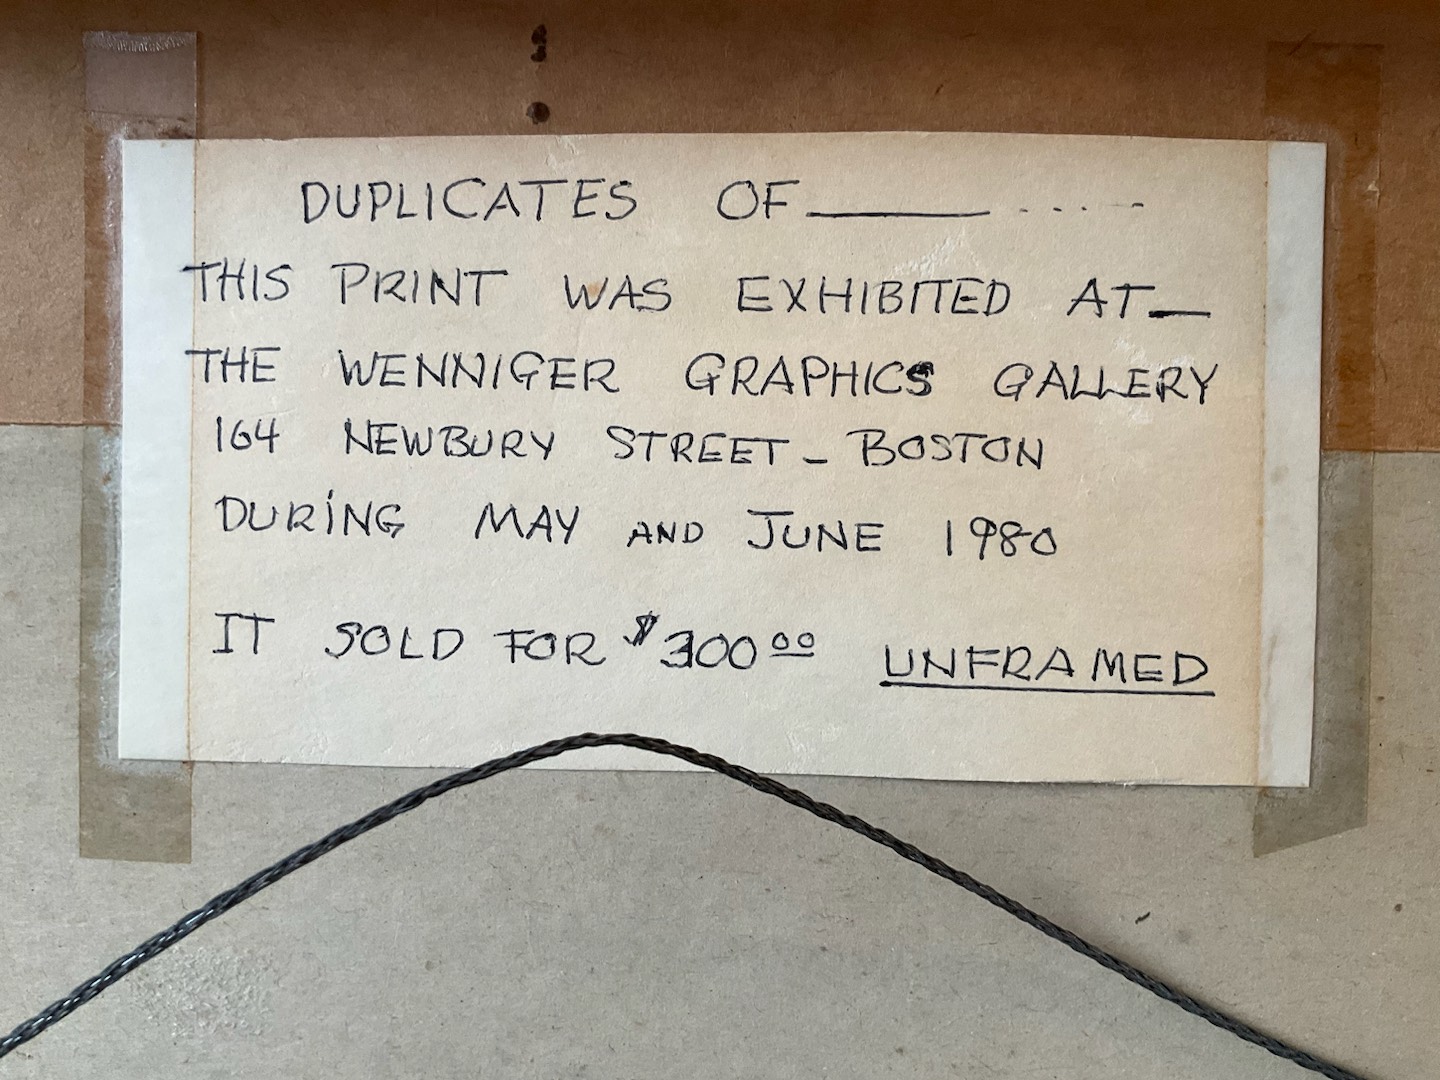 DUPLICATES OF______ .....
THIS PRINT WAS EXHIBITED AT_
THE WENNIGER GRAPHICS GALLERY
164 NEWBURY STREET - BOSTON
DURING MAY AND JUNE 1980
IT SOLD FOR $300.00 UNFRAMED